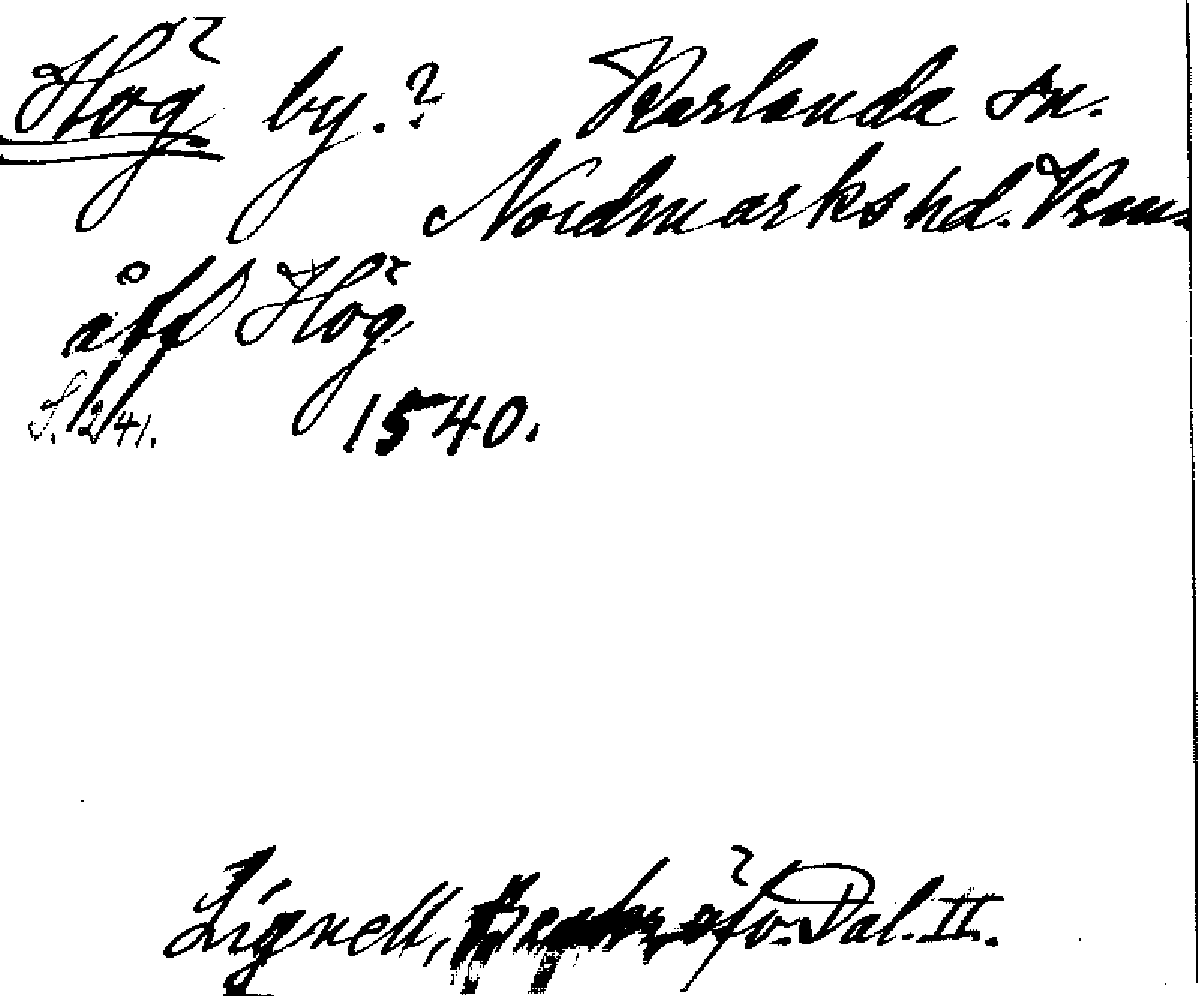 Hög by.? Karlanda sn.
Nordmarks hd. Vrm.
åff Hög
S. 12/41. 1540.
Lignell, Beskr. öfv. Dal. II.